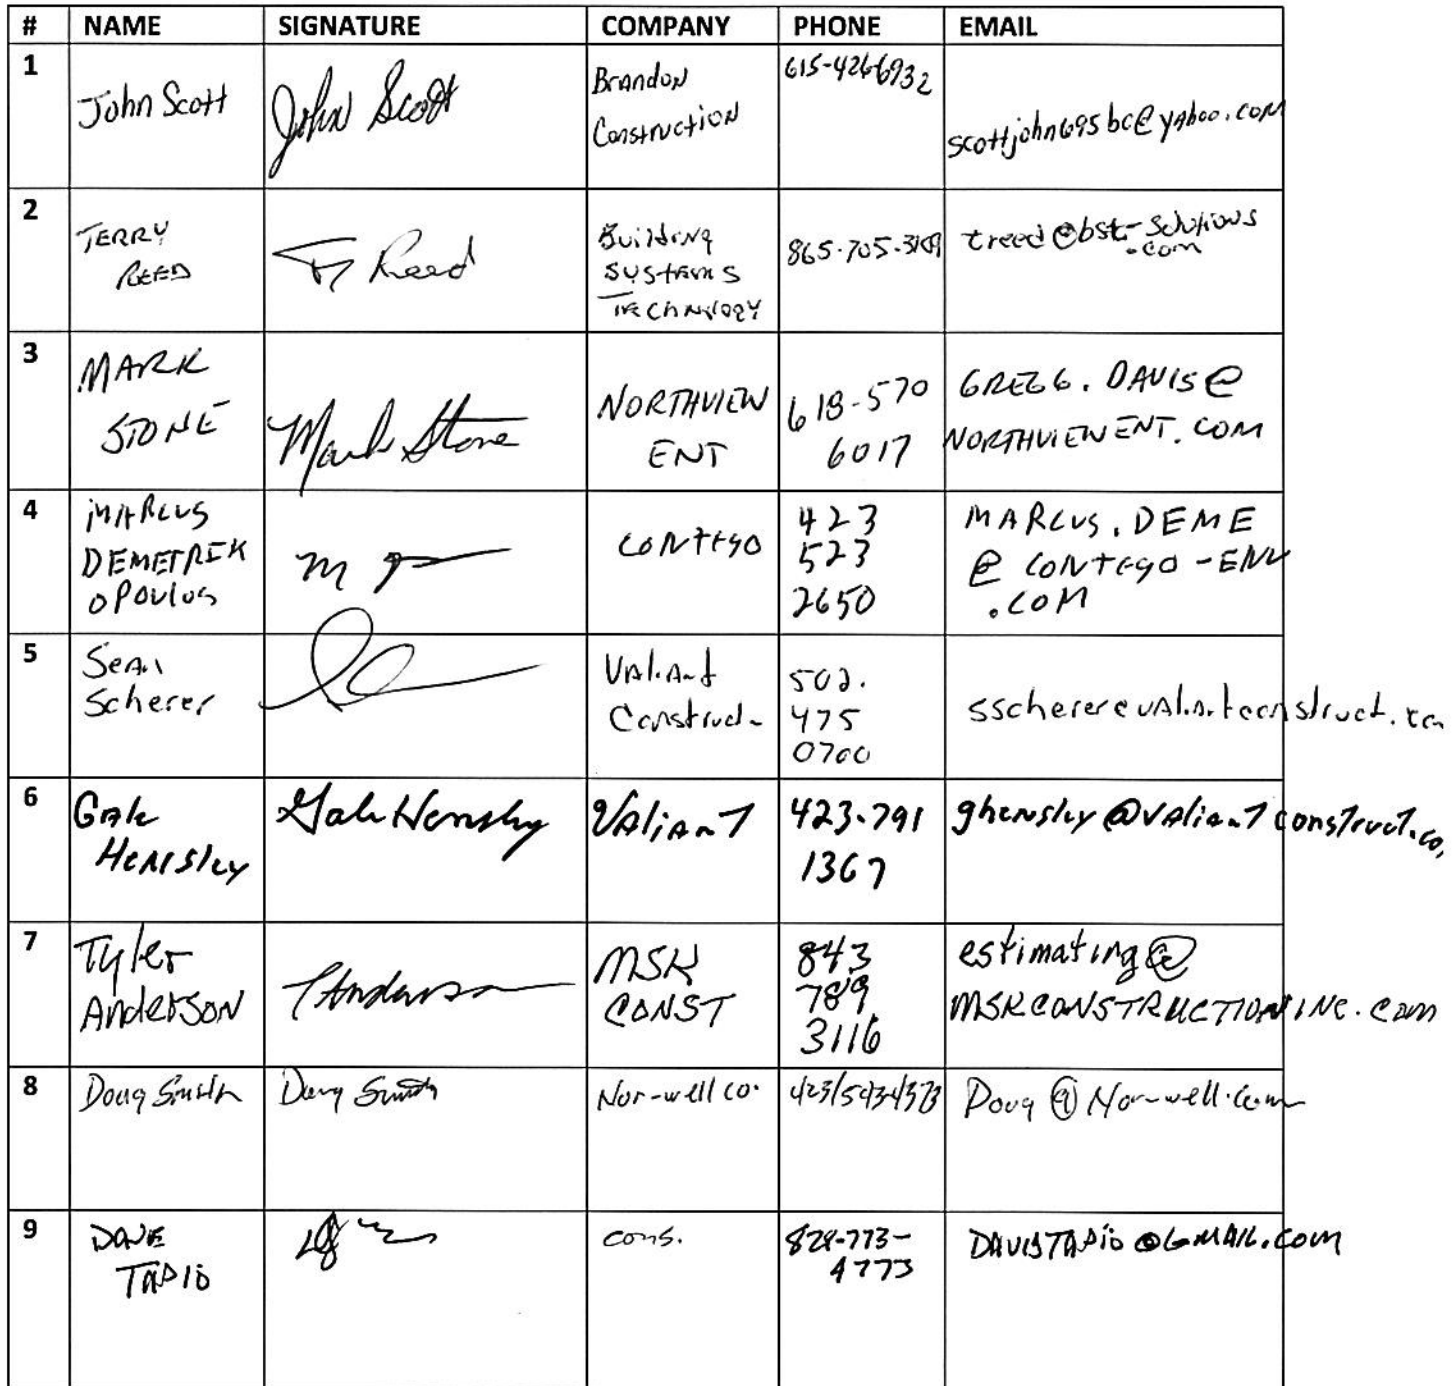 # NAME SIGNATURE COMPANY PHONE EMAIL
1 John Scott John Scott Brandon Construction 615-426-6932 scottjohn695bc@yahoo.com
2 TERRY REED T Reed Building Systems Technology 865-705- treed@bst-solutions.com
3 MARK STONE Mark Stone NORTHVIEW ENT 618-570 6017 GREGG.DAVIS@NORTHVIEWENT.COM
4 MARCUS DEMETRIKOPOULOS CONTEGO 423 523 2650 MARCUS.DEME@CONTEGO-ENV.COM
5 Sean Scherer Valiant Construct 502. 475 0700 sscherer@valiantconstruct.com
6 Gale Hensley Gale Hensley Valiant 423-791 1367 ghensley@valiantconstruct.co
7 Tyler Anderson TAnderson MSK CONST 843 789 3116 estimating@MSKCONSTRUCTIONINC.com
8 Doug Smith Doug Smith Nor-well co. Doug@Nor-well.com
9 DAVE TAPIO cons. 828-773-4773 DAVISTAPIO@GMAIL.COM